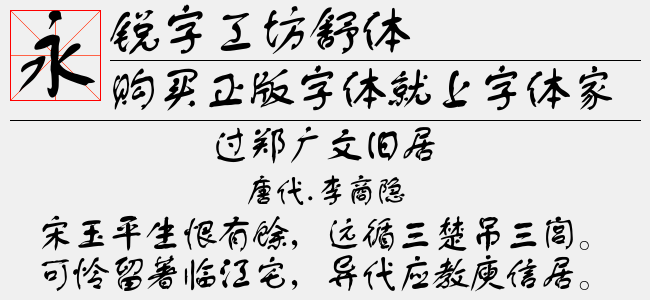 永
锐字工坊舒体
购买正版字体就上字体家
过郑广文旧居
唐代.李商隐
宋玉平生恨有馀，远循三楚吊三闾。
可怜留著临江宅，异代应教庾信居。